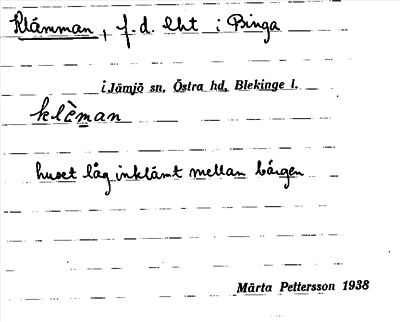 Klämman, f.d. lht i Binga
i Jämjö sn, Östra hd, Blekinge l.
klèman
huset låg inklämt mellan bärgen
Märta Pettersson 1938